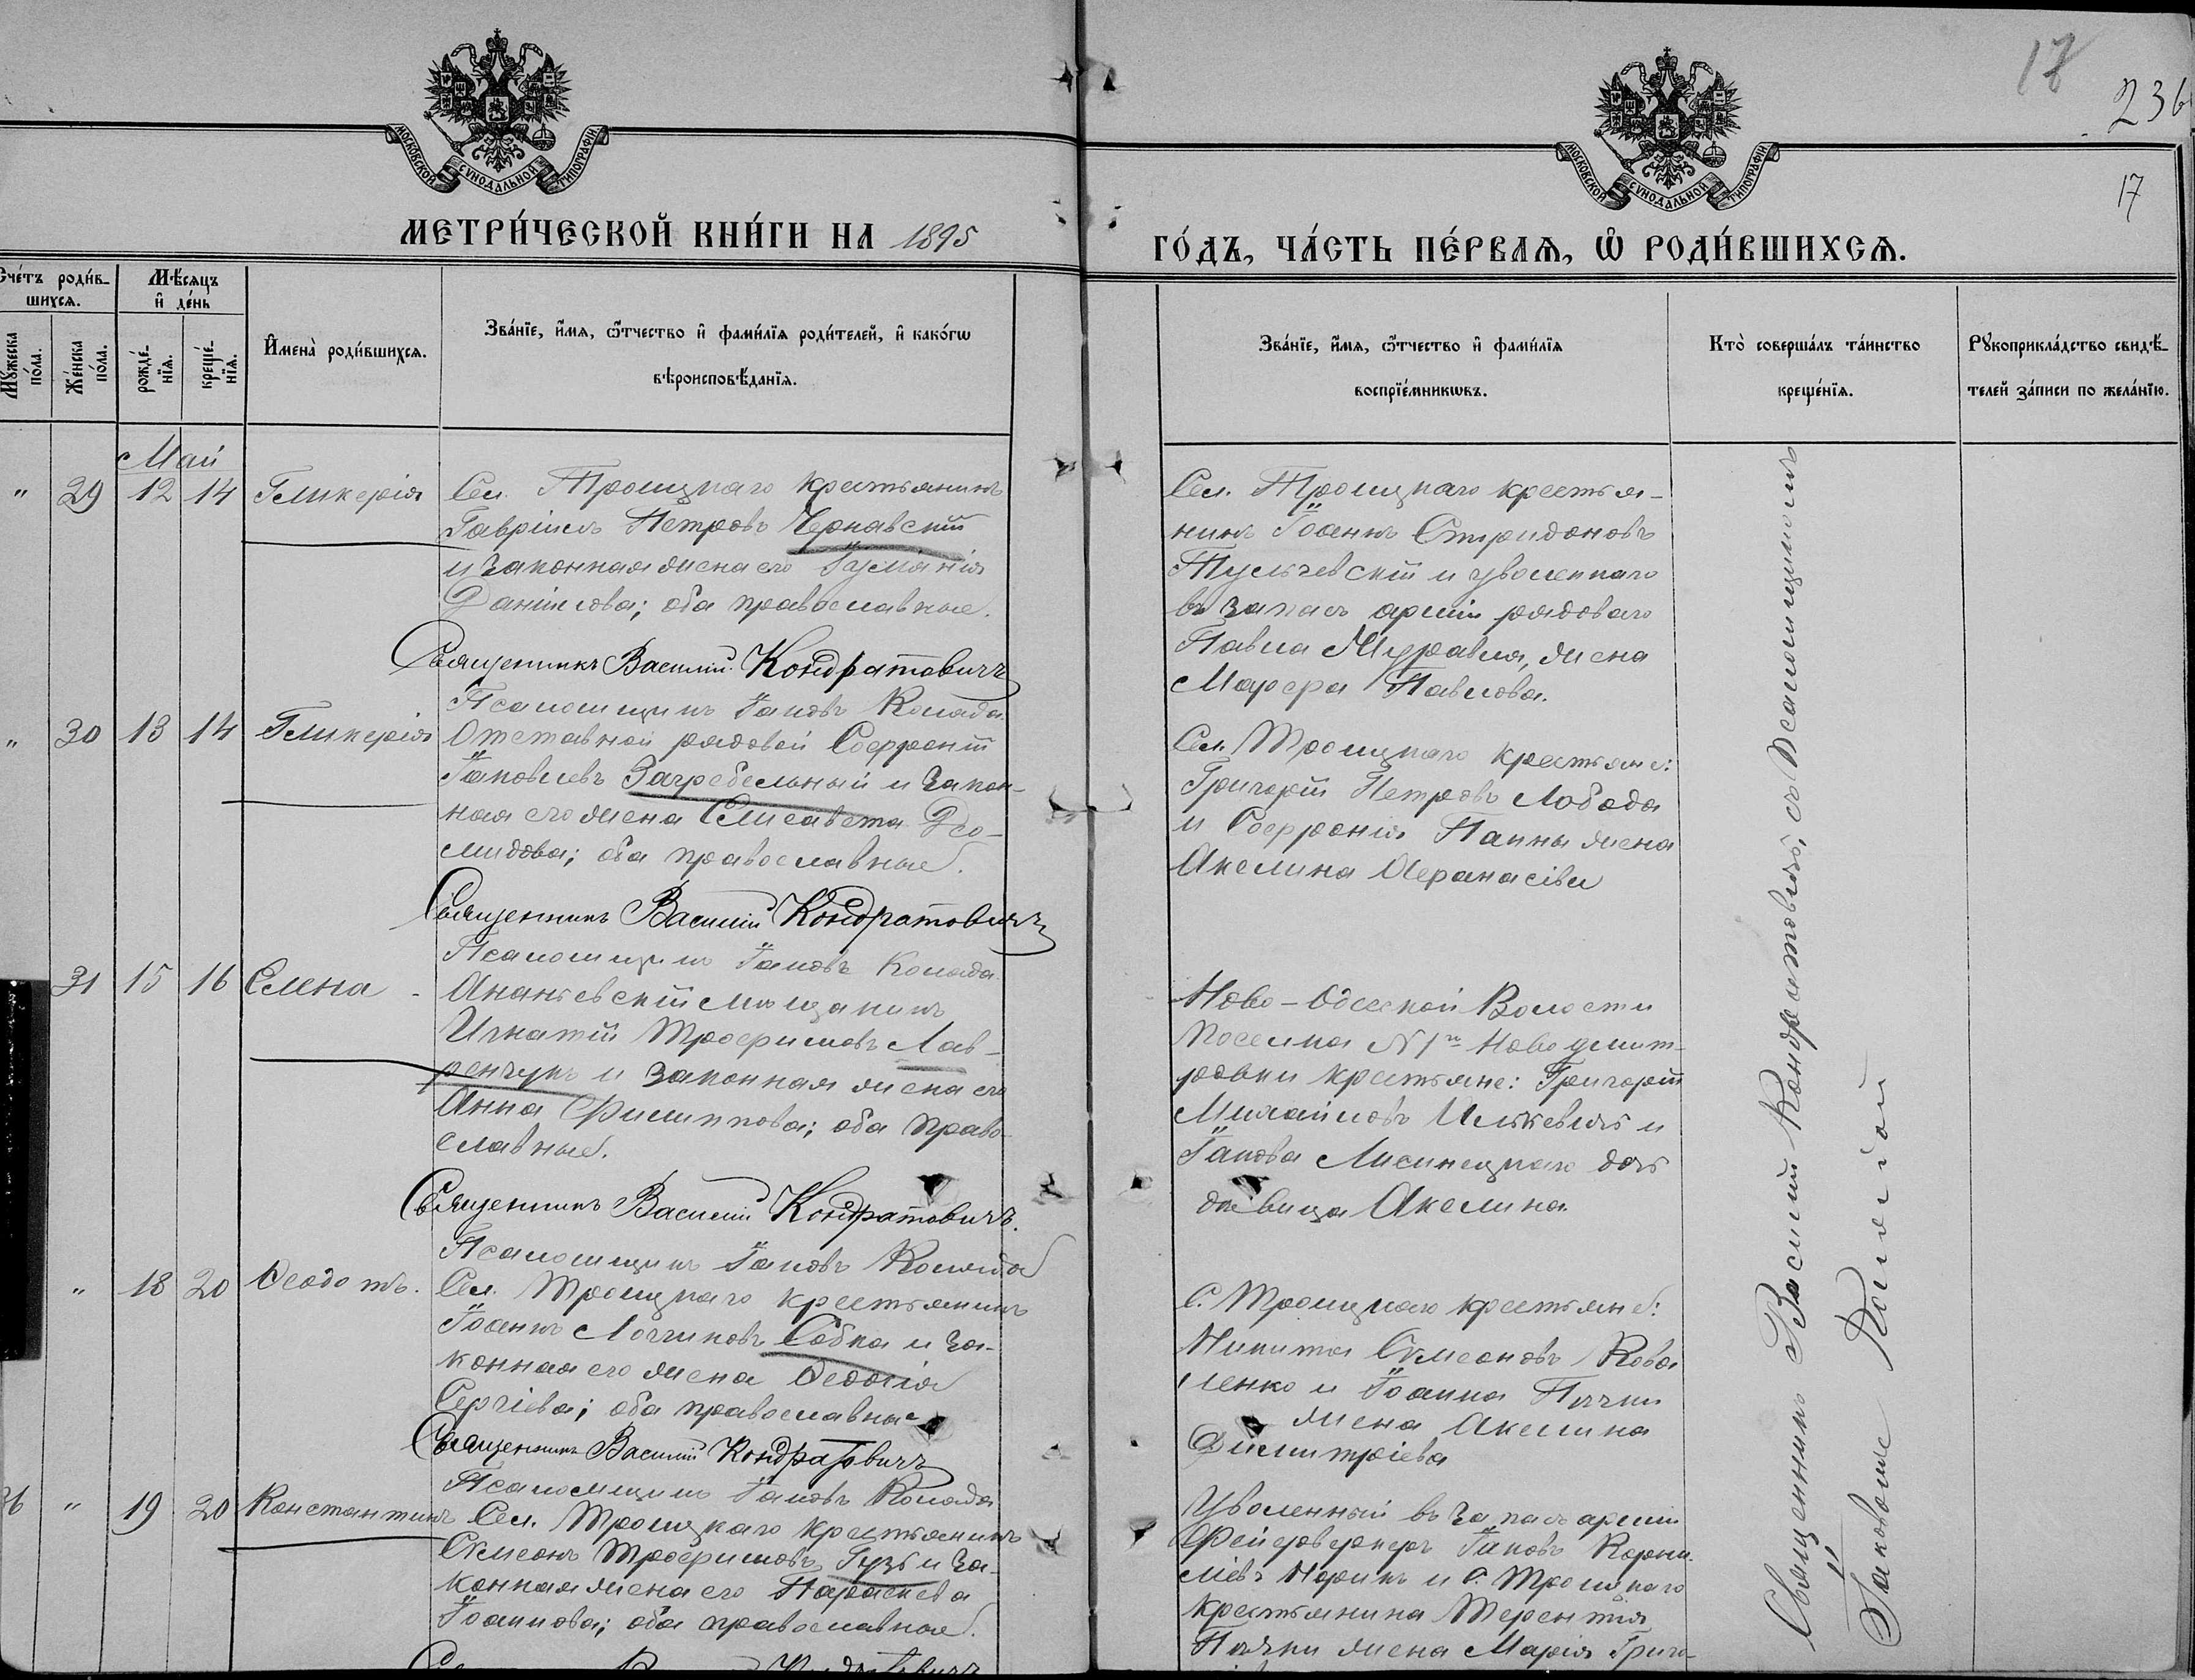 17
236
17
МОСКОВСКОЙ СѴНОДАЛЬНОЙ ТИПОГРАФІИ
МОСКОВСКОЙ СѴНОДАЛЬНОЙ ТИПОГРАФІИ
МЕТРИ́ЧЕСКОЙ КНИ́ГИ НА 1895
ГО́ДЪ, ЧА́СТЬ ПЕ́РВАѦ, Ѡ҆ РОДИ́ВШИХСѦ.
Сче́тъ роди́в-
шихсѧ.
Мꙋ́жеска по́ла.
Же́нска по́ла.
Мѣ́сѧцъ
и҆ де́нь
рожде́-
нїѧ.
креще́-
нїѧ.
И҆мена̀ роди́вшихсѧ.
Зва́нїе, и҆́мѧ, ѻ҆́тчество и҆ фами́лїѧ роди́телей, и҆ како́гѡ
вѣроисповѣ́данїѧ.
Зва́нїе, и҆́мѧ, ѻ҆́тчество и҆ фами́лїѧ
воспрїе́мникѡвъ.
Кто̀ соверша́лъ та́инство
креще́нїѧ.
Рꙋкоприкла́дство свидѣ́-
телей за́писи по жела́нїю.
Май
" 29 12 14 Гликерія
Сел. Троицкаго крестьянинъ
Гавріилъ Петровъ Чернавскій
и законная жена его Іуліанія
Даніилова; оба православные.
Священникъ Василій Кондратовичъ
Псаломщикъ Іаковъ Коляда
Сел. Троицкаго крестья-
нинъ Іоаннъ Спиридоновъ
Тульчевскій и уволеннаго
въ запасъ арміи рядоваго
Павла Журавля, жена
Марѳа Павлова.
" 30 13 14 Гликерія
Отставной рядовой Софроній
Іаковлевъ Загребельный и закон-
ная его жена Елисавета Део-
мидова; оба православные.
Священникъ Василій Кондратовичъ
Псаломщикъ Іаковъ Коляда
Сел. Троицкаго крестьяне:
Григорій Петровъ Лобода
и Софронія Папны жена
Акелина Аѳанасіева
31 15 16 Елена
Ананьевскій мѣщанинъ
Игнатій Трофимовъ Лав-
ренчукъ и законная жена его
Анна Филиппова; оба право-
славные.
Священникъ Василій Кондратовичъ.
Псаломщикъ Іаковъ Коляда
Ново-Одесской Волости
поселка № 1й Новодмит-
ровки крестьяне: Григорій
Михайловъ Илькевичъ и
Іакова Лисинецкаго дочь
дѣвица Акелина
" 18 20 Ѳеодотъ.
Сел. Троицкаго крестьянинъ
Іоаннъ Логгиновъ Собка и за-
конная его жена Ѳеодосія
Сергіева; оба православные
Священникъ Василій Кондратовичъ
Псаломщикъ Іаковъ Коляда
С. Троицкаго крестьяне:
Никита Сѵмеоновъ Кова
ленко и Іоанна Пички
жена Акелина
Димитріева
36 " 19 20 Константинъ
Сел. Троицкаго крестьянинъ
Сѵмеонъ Трофимовъ Гузь и за-
конная жена его Параскева
Іоаннова; оба православные.
Уволенный въ запасъ арміи
Фейерверкеръ Іаковъ Корни-
ліевъ и С. Троицкаго
крестьянина Терентія
Пички жена Марія Григо-
Священникъ Василій Кондратовичъ, съ Псаломщикомъ
Іаковомъ Колядой